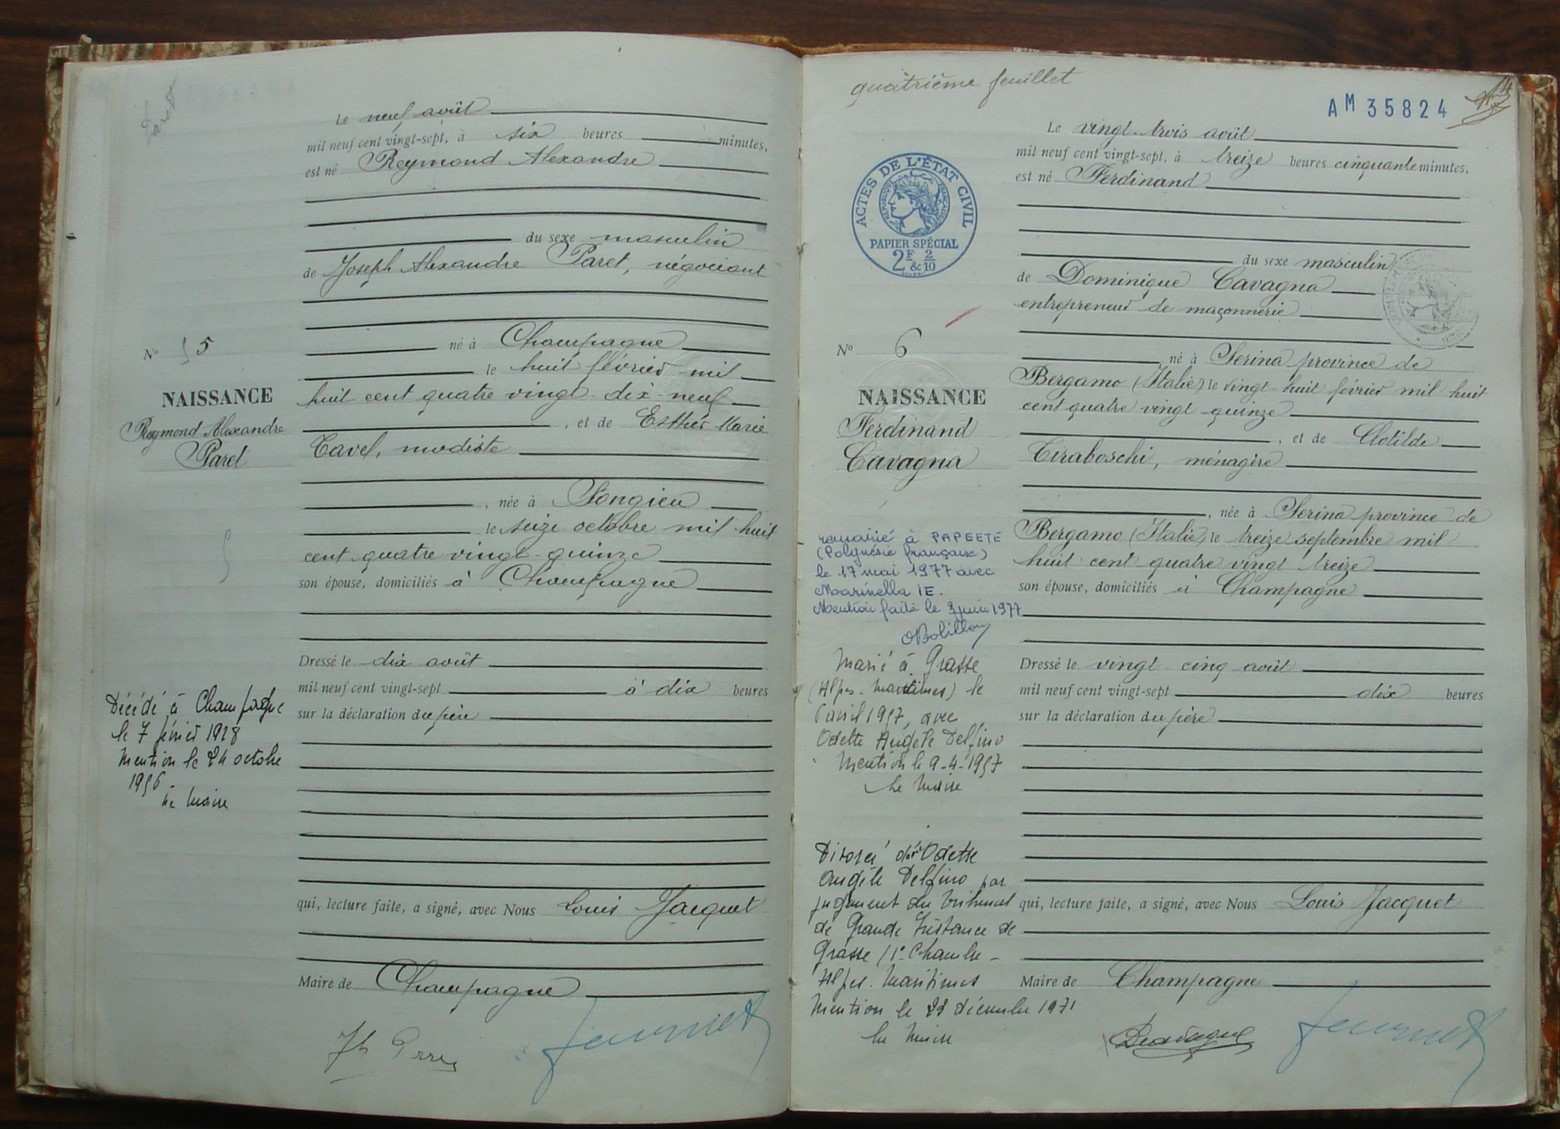 Le neuf août
mil neuf cent vingt-sept, à six heures minutes,
est né Reymond Alexandre
du sexe masculin
de Joseph Alexandre Paret, négociant
né à Champagne
le huit février mil
huit cent quatre vingt dix-neuf
, et de Esther Marie
Tavel, modiste
, née à Songieu
le seize octobre mil huit
cent quatre vingt-quinze
son épouse, domiciliés à Champagne
Dressé le dix août
mil neuf cent vingt-sept à dix heures
sur la déclaration du père
qui, lecture faite, a signé, avec Nous Louis Jacquet
Maire de Champagne
N° 5
NAISSANCE
Reymond Alexandre
Paret
Décédé à Champagne
le 7 février 1928
Mention le 24 octobre
1956
Le Maire
quatrième feuillet
AM 35824
ACTES DE L'ÉTAT CIVIL
PAPIER SPÉCIAL
2F 2/10
&
Le vingt-trois août
mil neuf cent vingt-sept, à treize heures cinquante minutes,
est né Ferdinand
du sexe masculin
de Dominique Cavagna
entrepreneur de maçonnerie
né à Serina province de
Bergamo (Italie) le vingt huit février mil huit
cent quatre vingt quinze
, et de Clotilde
Tiraboschi, ménagère
, née à Serina province de
Bergamo (Italie) le treize septembre mil
huit cent quatre vingt treize
son épouse, domiciliés à Champagne
Dressé le vingt cinq août
mil neuf cent vingt-sept dix heures
sur la déclaration du père
qui, lecture faite, a signé, avec Nous Louis Jacquet
Maire de Champagne
N° 6
NAISSANCE
Ferdinand
Cavagna
remarié à PAPEETE
(Polynésie française)
le 17 mai 1977 avec
Marinella IE.
Mention faite le 3 juin 1977
Marié à Grasse
(Alpes-Maritimes) le
6 avril 1957, avec
Odette Angèle Delfino
Mention le 9-4-1957
Le Maire
Divorcé d'av Odette
Angèle Delfino par
jugement du tribunal
de Grande Instance de
Grasse (1e Chambre -
Alpes-Maritimes
Mention le 28 décembre 1971
Le Maire